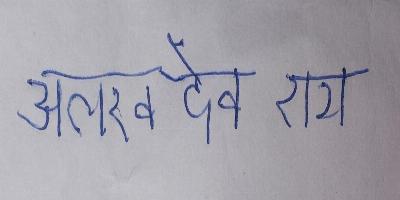 अलख देव राय